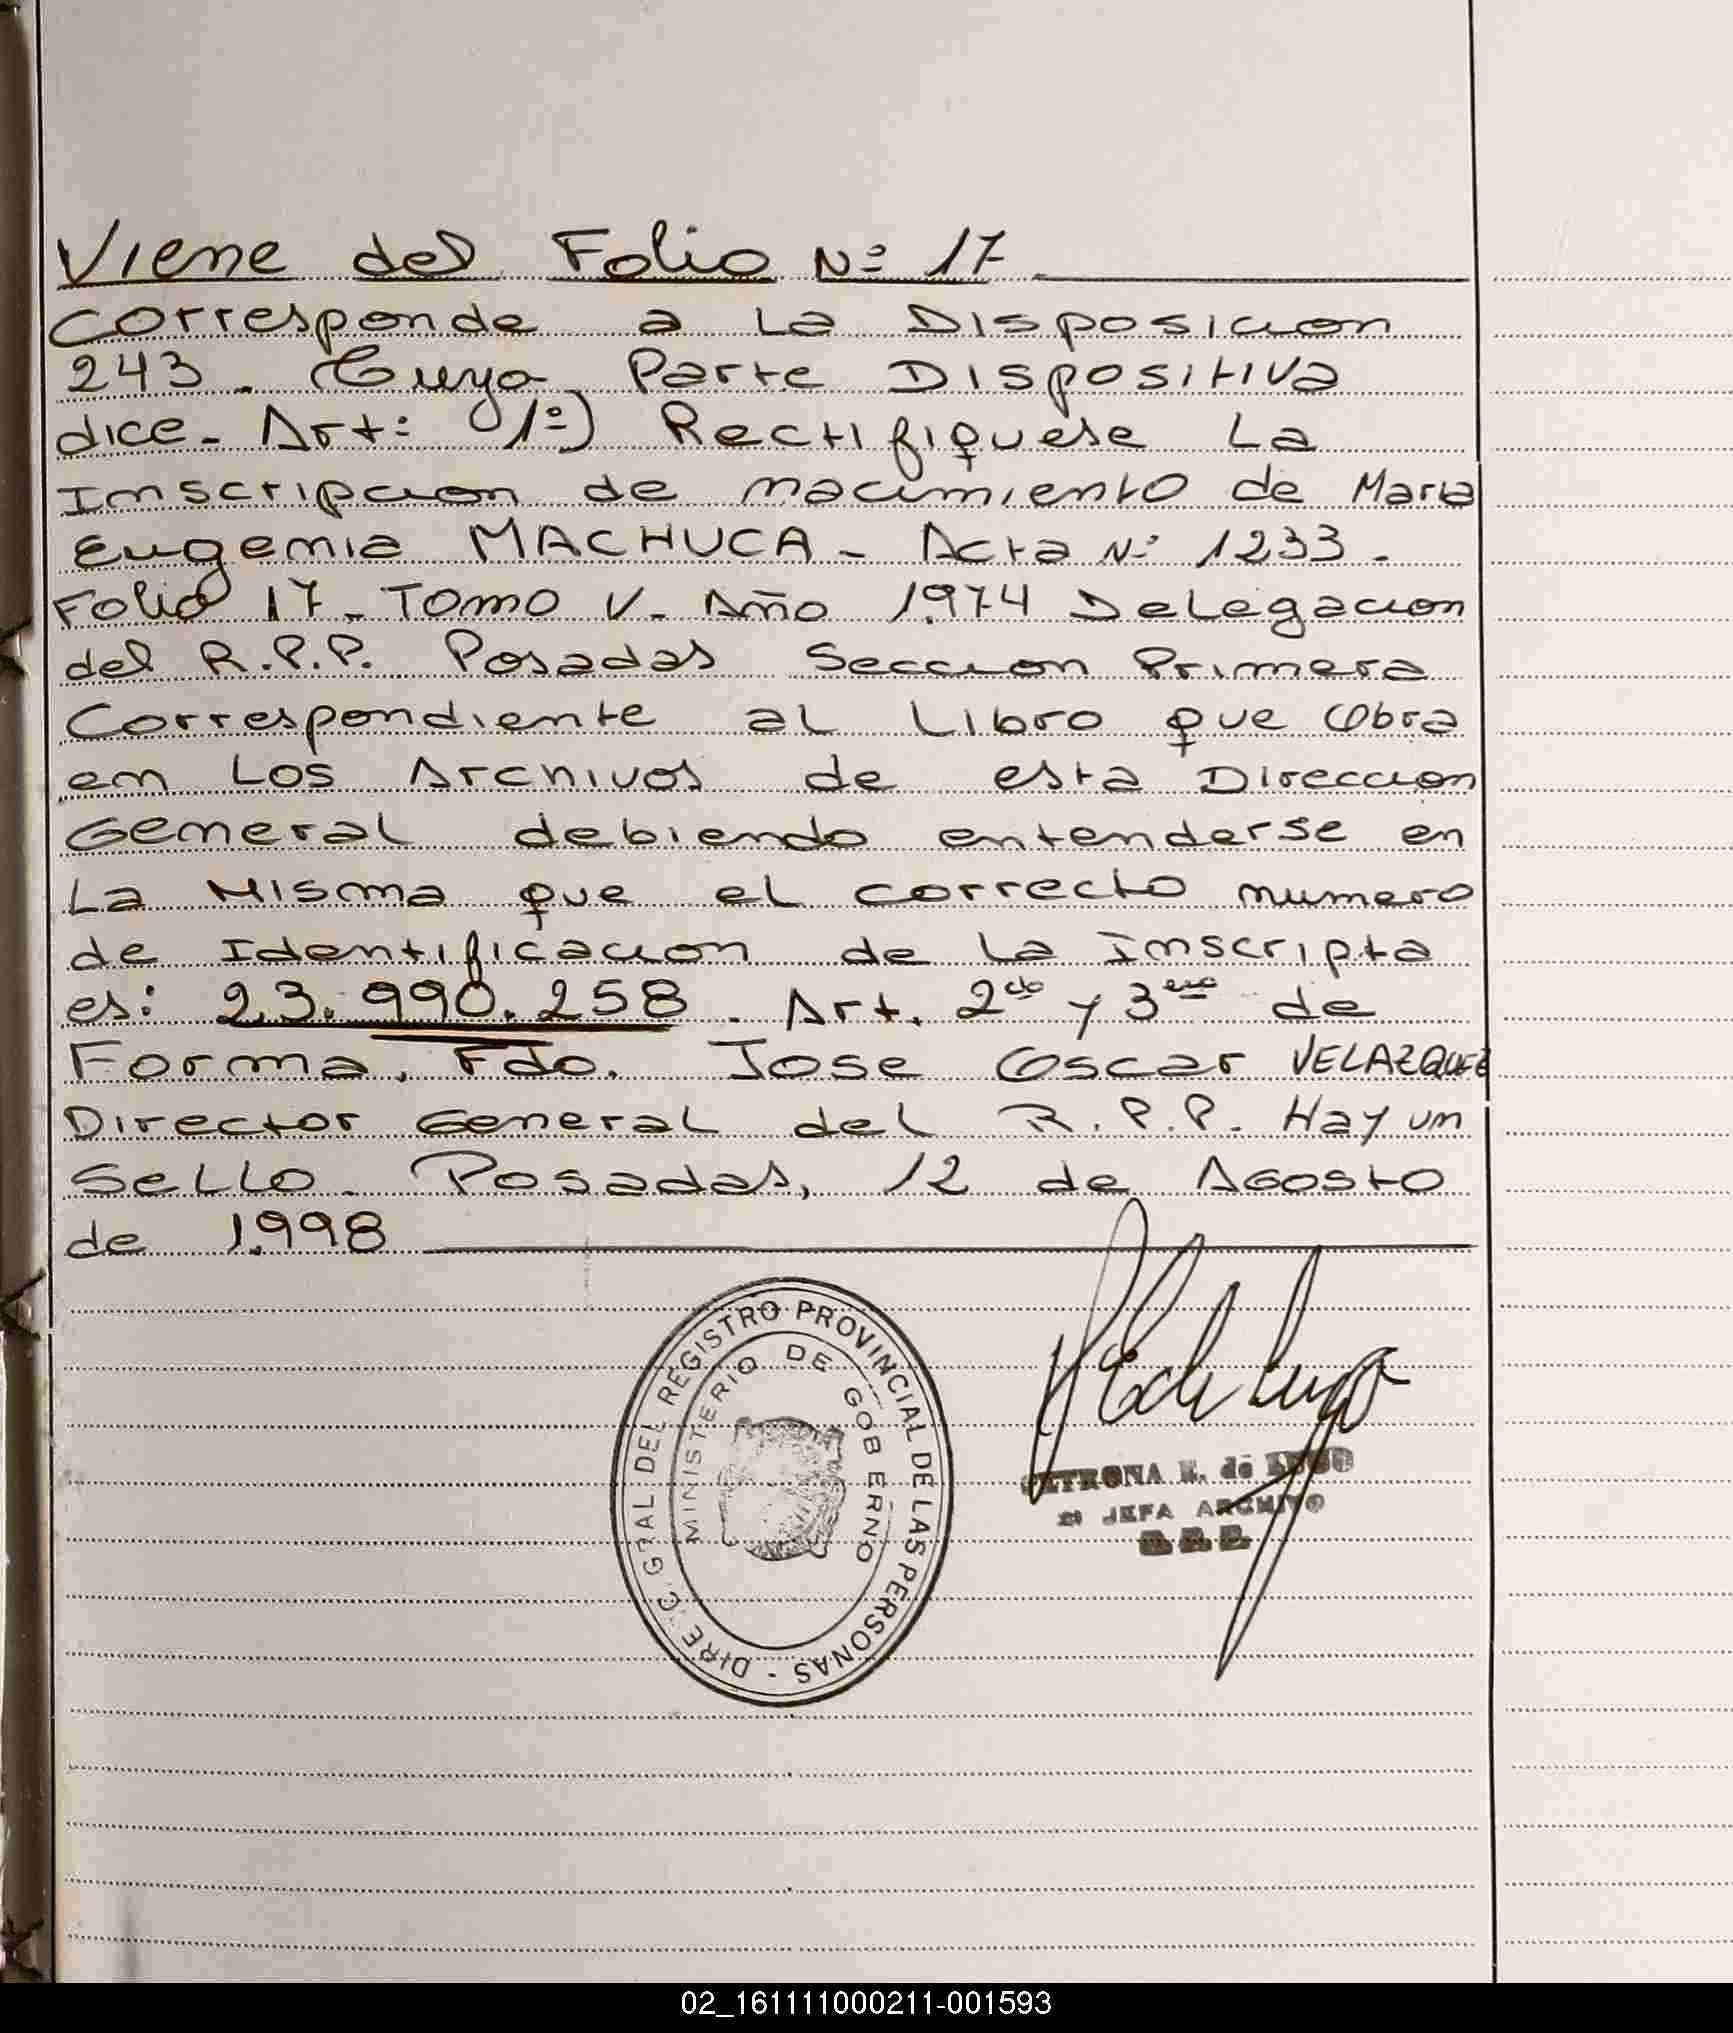 Viene del Folio Nº 17
Corresponde a La Disposicion
243. Cuya Parte Dispositiva
dice. Art: 1º) Rectifiquese La
Inscripcion de nacimiento de Maria
Eugenia MACHUCA - Acta Nº 1233.
Folio 17 - Tomo V - Año 1.974 Delegacion
del R.P.P. Posadas Seccion Primera
Correspondiente al Libro que Obra
en Los Archivos de esta Direccion
General debiendo entenderse en
La Misma que el correcto numero
de Identificacion de La Inscripta
es: 23.990.258. Art. 2do y 3ero de
Forma. Fdo. Jose Oscar VELAZQUEZ
Director General del R.P.P. Hay un
Sello. Posadas, 12 de Agosto
de 1.998
DIREC. GRAL DEL REGISTRO PROVINCIAL DE LAS PERSONAS -
MINISTERIO DE GOBIERNO
PETRONA E. de LUGO
JEFA ARCHIVO
R.P.P.
02_161111000211-001593